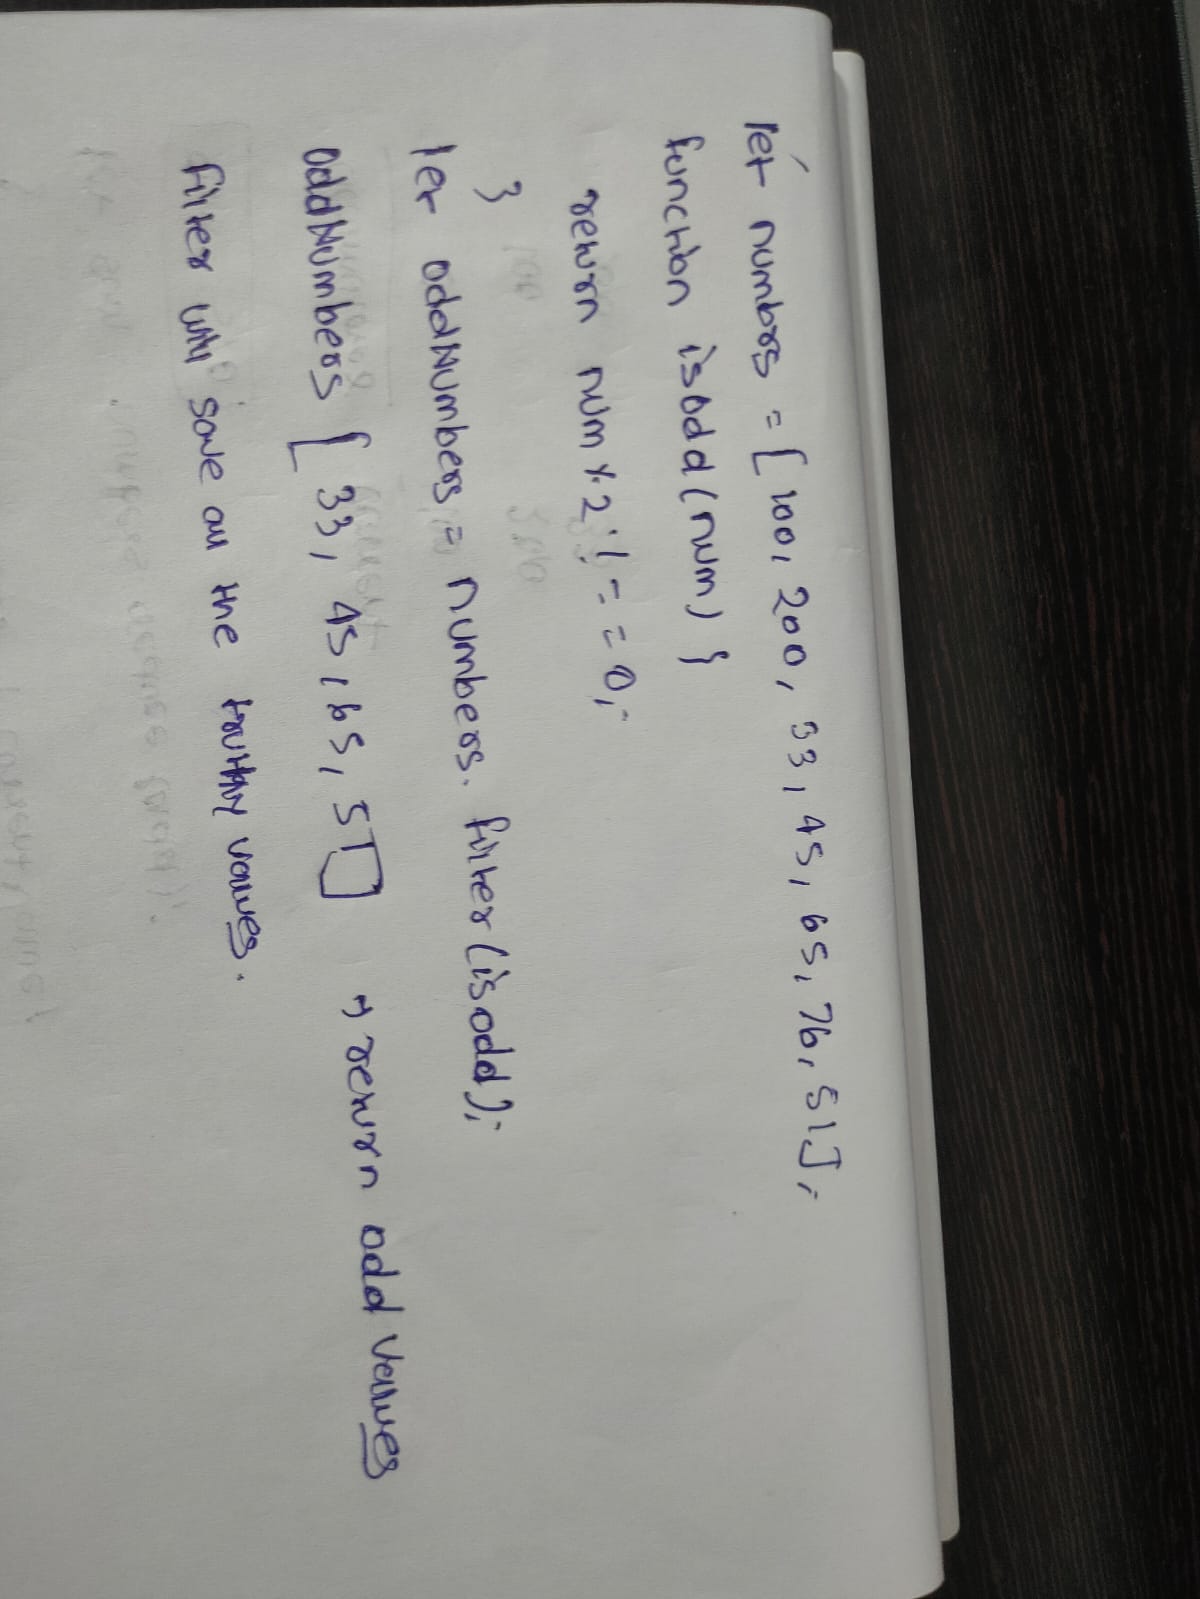 let numbrs = [100, 200, 33, 45, 65, 76, 51];
function isodd(num) {
return num % 2 ! == 0;
}
let oddNumbers = numbers. filter(isodd);
oddNumbers [33, 45, 65, 51] → return odd values
filter will save all the truthy values.